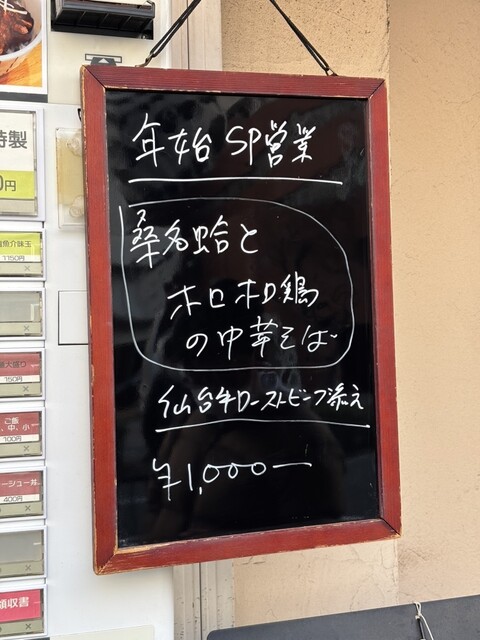 年始SP営業
桑名蛤と
ホロホロ鶏
の中華そば
仙台牛ローストビーフ添え
¥1,000ー
特製
0円
魚介味玉
1150円
大盛り
150円
ご飯
中、小
100円
ーシュー丼
400円
領収書